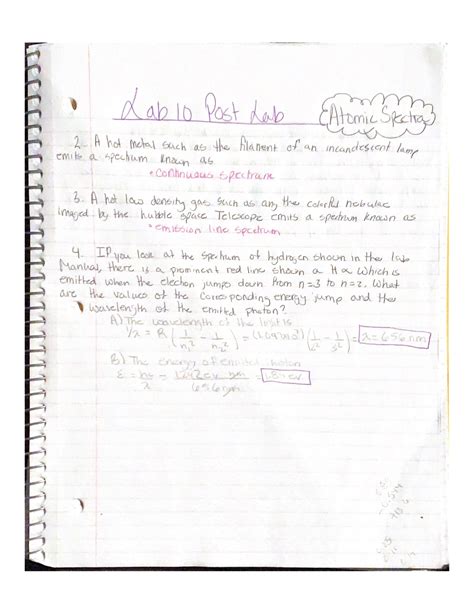 Lab 10 Post Lab
Atomic Spectra
2. A hot metal such as the filament of an incandescent lamp
emits a spectrum known as
• Continuous spectrum
3. A hot low density gas such as any the colorful nebulae
imaged by the hubble space Telescope emits a spectrum known as
• emission line spectrum
4. If you look at the spectrum of hydrogen shown in the lab
Manual, there is a prominent red line shown a H α which is
emitted when the electron jumps down from n=3 to n=2. What
are the values of the corresponding energy jump and the
wavelength of the emitted photon?
A) The wavelength of the light is
1/λ = R (1/n₁² - 1/n₂²) = (1/2² - 1/3²) = λ = 656 nm
B) The energy of emitted photon
E = hc/λ =